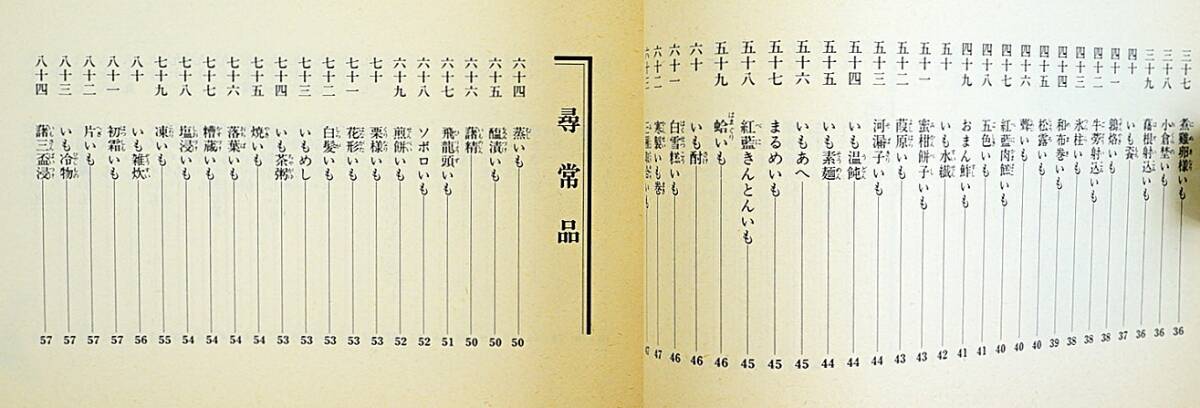 三十七 煮鶏卵様いも 36
三十八 小倉埜いも 36
三十九 藕根射込いも 36
四十 いも 37
いも 38
牛蒡射込いも 38
四十三 氷柱いも 38
四十四 和布巻いも 39
四十五 松露いも 40
四十六 いも 40
四十七 紅藍肉餻いも 40
四十八 五色いも 41
四十九 おまん鮓いも 41
五十 いも水繊 42
五十一 蜜柑餅子いも 43
五十二 葭原いも 43
五十三 河漏子いも 44
五十四 いも温飩 44
五十五 いも素麺 44
五十六 いもあへ 45
五十七 まるめいも 45
五十八 紅藍きんとんいも 45
五十九 蛤いも 46
六十 いも酎 46
六十一 白雪糕いも 46
六十二 寒製いも巻 47
尋常品
六十四 蒸いも 50
六十五 醢漬いも 50
六十六 藷精 50
六十七 飛龍頭いも 51
六十八 ソボロいも 52
六十九 煎餅いも 52
七十 栗様いも 53
七十一 花形いも 53
七十二 白髪いも 53
七十三 いもめし 53
七十四 いも茶粥 53
七十五 焼いも 54
七十六 落葉いも 54
七十七 糟蔵いも 54
七十八 塩浸いも 54
七十九 凍いも 55
八十 いも雑炊 56
八十一 初霜いも 57
八十二 片いも 57
八十三 いも冷物 57
八十四 藷三盃浸 57